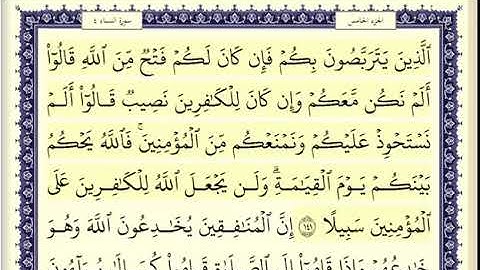 الجزء الخامس
سورة النساء ٤
ٱلَّذِينَ يَتَرَبَّصُونَ بِكُمْ فَإِن كَانَ لَكُمْ فَتْحٌ مِّنَ ٱللَّهِ قَالُوٓا۟
أَلَمْ نَكُن مَّعَكُمْ وَإِن كَانَ لِلْكَٰفِرِينَ نَصِيبٌ قَالُوٓا۟ أَلَمْ
نَسْتَحْوِذْ عَلَيْكُمْ وَنَمْنَعْكُم مِّنَ ٱلْمُؤْمِنِينَ ۚ فَٱللَّهُ يَحْكُمُ
بَيْنَكُمْ يَوْمَ ٱلْقِيَٰمَةِ ۗ وَلَن يَجْعَلَ ٱللَّهُ لِلْكَٰفِرِينَ عَلَى
ٱلْمُؤْمِنِينَ سَبِيلًا ١٤١ إِنَّ ٱلْمُنَٰفِقِينَ يُخَٰدِعُونَ ٱللَّهَ وَهُوَ
خَٰدِعُهُمْ وَإِذَا قَامُوٓا۟ إِلَى ٱلصَّلَوٰةِ قَامُوا۟ كُسَالَىٰ يُرَآءُونَ